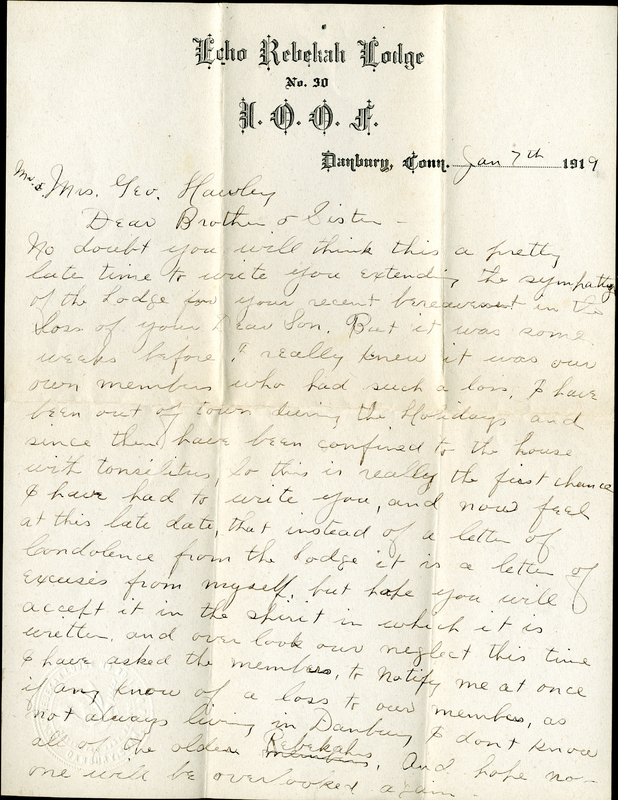 Echo Rebekah Lodge
No. 30
I. O. O. F.
Danbury, Conn. Jan 7th 1919
Mr. & Mrs. Geo. Hawley
Dear Brother & Sister -
No doubt you will think this a pretty
late time to write you extending the sympathy
of the Lodge for your recent bereavement in the
Loss of your Dear Son. But it was some
weeks before I really knew it was our
own members who had such a loss. I have
been out of town during the Holidays and
since then have been confined to the house
with tonselitus, So this is really the first chance
I have had to write you, and now feel
at this late date, that instead of a letter of
Condolence from the Lodge it is a letter of
excuses from myself, but hope you will
accept it in the spirit in which it is
written. and over look our neglect this time
I have asked the members, to notify me at once
if any know of a loss to our members, as
not always living in Danbury I don't know
all of the older Rebekahs
members, And hope no-
one will be overlooked again -